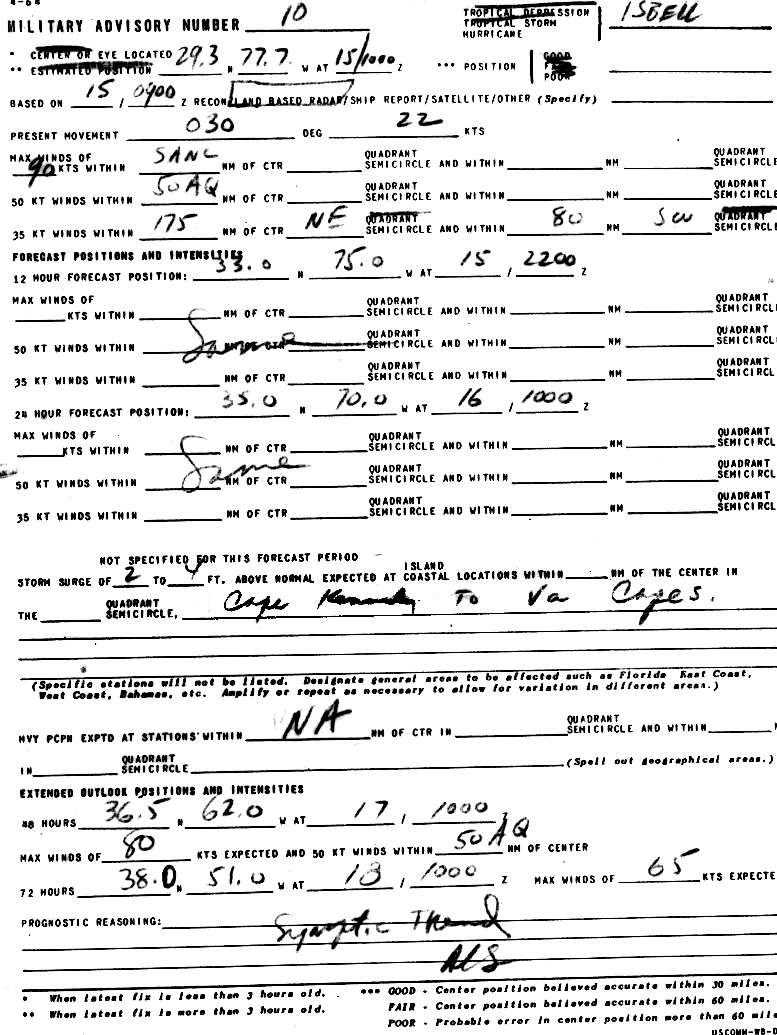 4-64
MILITARY ADVISORY NUMBER 10 TROPICAL DEPRESSION ISBELL
TROPICAL STORM
HURRICANE
* CENTER OR EYE LOCATED 29.3 N 77.7 W AT 15/1000 Z *** POSITION GOOD
** ESTIMATED POSITION FAIR
POOR
BASED ON 15 / 0900 Z RECON/LAND BASED RADAR/SHIP REPORT/SATELLITE/OTHER (Specify)
PRESENT MOVEMENT 030 DEG 22 KTS
MAX WINDS OF QUADRANT QUADRANT
90 KTS WITHIN NM OF CTR SEMICIRCLE AND WITHIN NM SEMICIRCLE
50 KT WINDS WITHIN 50 AQ NM OF CTR QUADRANT SEMICIRCLE AND WITHIN NM QUADRANT SEMICIRCL
35 KT WINDS WITHIN 175 NM OF CTR NE QUADRANT SEMICIRCLE AND WITHIN 80 NM SW QUADRANT SEMICIRCLE
FORECAST POSITIONS AND INTENSITIES
12 HOUR FORECAST POSITION: 33.0 N 75.0 W AT 15 / 2200 Z
MAX WINDS OF QUADRANT QUADRANT
KTS WITHIN NM OF CTR SEMICIRCLE AND WITHIN NM SEMICIRCL
50 KT WINDS WITHIN Same NM OF CTR QUADRANT SEMICIRCLE AND WITHIN NM QUADRANT SEMICIRCL
35 KT WINDS WITHIN NM OF CTR QUADRANT SEMICIRCLE AND WITHIN NM QUADRANT SEMICIRCL
24 HOUR FORECAST POSITION: 35.0 N 70.0 W AT 16 / 1000 Z
MAX WINDS OF QUADRANT QUADRANT
KTS WITHIN NM OF CTR SEMICIRCLE AND WITHIN NM SEMICIRCL
50 KT WINDS WITHIN Same NM OF CTR QUADRANT SEMICIRCLE AND WITHIN NM QUADRANT SEMICIRCL
35 KT WINDS WITHIN NM OF CTR QUADRANT SEMICIRCLE AND WITHIN NM QUADRANT SEMICIRCL
NOT SPECIFIED FOR THIS FORECAST PERIOD
ISLAND
STORM SURGE OF 2 TO 4 FT. ABOVE NORMAL EXPECTED AT COASTAL LOCATIONS WITHIN NM OF THE CENTER IN
THE QUADRANT SEMICIRCLE, Cape Kennedy To Va Capes.
*
(Specific stations will not be listed. Designate general areas to be affected such as Florida East Coast,
West Coast, Bahamas, etc. Amplify or repeat as necessary to allow for variation in different areas.)
HVY PCPN EXPTD AT STATIONS WITHIN NA NM OF CTR IN QUADRANT SEMICIRCLE AND WITHIN
IN QUADRANT SEMICIRCLE (Spell out geographical areas.)
EXTENDED OUTLOOK POSITIONS AND INTENSITIES
48 HOURS 36.5 N 62.0 W AT 17 / 1000 Z
MAX WINDS OF 80 KTS EXPECTED AND 50 KT WINDS WITHIN 50 AQ NM OF CENTER
72 HOURS 38.0 N 51.0 W AT 18 / 1000 Z MAX WINDS OF 65 KTS EXPECTE
PROGNOSTIC REASONING: Synoptic Trend
* When latest fix is less than 3 hours old. *** GOOD - Center position believed accurate within 30 miles.
** When latest fix is more than 3 hours old. FAIR - Center position believed accurate within 60 miles.
POOR - Probable error in center position more than 60 mil
USCOMM-WB-D